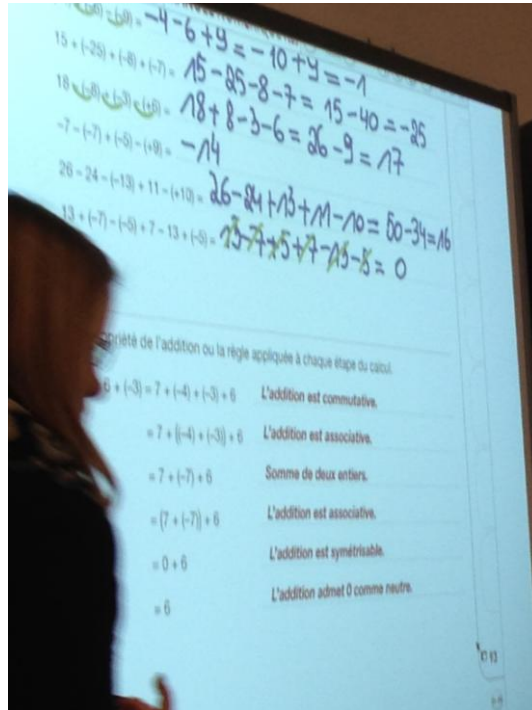 = -4-6+9 = -10+9 = -1
15 + (-25) + (-8) + (-7) = 15-25-8-7 = 15-40 = -25
18 - (-8) + (-3) - (+6) = 18+8-3-6 = 26-9 = 17
-7 - (-7) + (-5) - (+9) = -14
26 - 24 - (-13) + 11 - (+10) = 26-24+13+11-10 = 50-34 = 16
13 + (-7) - (-5) + 7 - 13 + (-5) = 13-7+5+7-13-5 = 0
priété de l'addition ou la règle appliquée à chaque étape du calcul.
6 + (-3) = 7 + (-4) + (-3) + 6 L'addition est commutative.
= 7 + [(-4) + (-3)] + 6 L'addition est associative.
= 7 + (-7) + 6 Somme de deux entiers.
= [7 + (-7)] + 6 L'addition est associative.
= 0 + 6 L'addition est symétrisable.
= 6 L'addition admet 0 comme neutre.